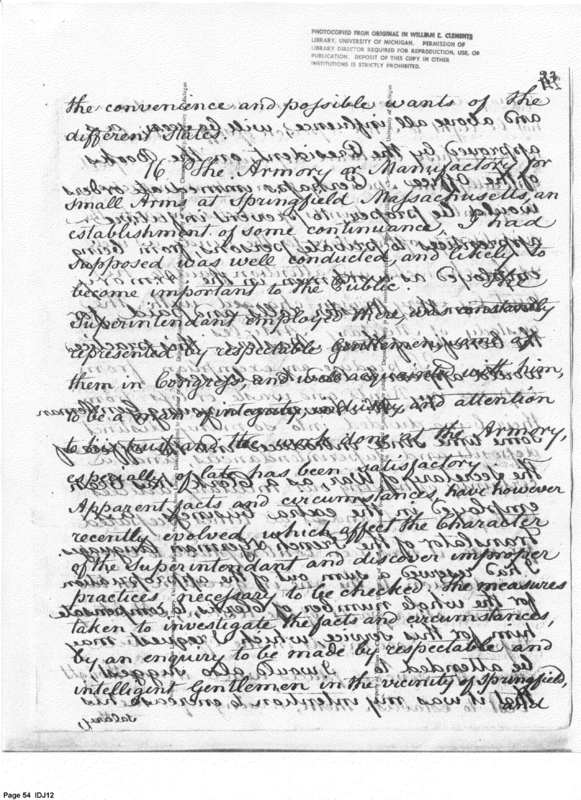 PHOTOCOPIED FROM ORIGINAL IN WILLIAM C. CLEMENTS
LIBRARY, UNIVERSITY OF MICHIGAN. PERMISSION OF
LIBRARY DIRECTOR REQUIRED FOR REPRODUCTION, USE, OR
PUBLICATION. DEPOSIT OF THIS COPY IN OTHER
INSTITUTIONS IS STRICTLY PROHIBITED.
the convenience and possible wants of the
different States.
16 The Armory or Manufactory for
small Arms at Springfield Massachusetts, an
establishment of some continuance, I had
supposed was well conducted, and likely to
become important to the Public. The
Superintendant employed there, was constantly
represented by respectable Gentlemen, some of
them in Congress, and well acquainted with him,
to be a of integrity, and attention
to his trust, and the work done at the Armory,
especially of late has been satisfactory.
Apparent facts and circumstances, have however
recently evolved, which affect the Character
of the Superintendant and discover improper
practices, necessary to be checked, the measures
taken to investigate the facts and circumstances,
by an enquiry to be made by respectable and
intelligent Gentlemen in the vicinity of Springfield,
Page 54 IDJ12